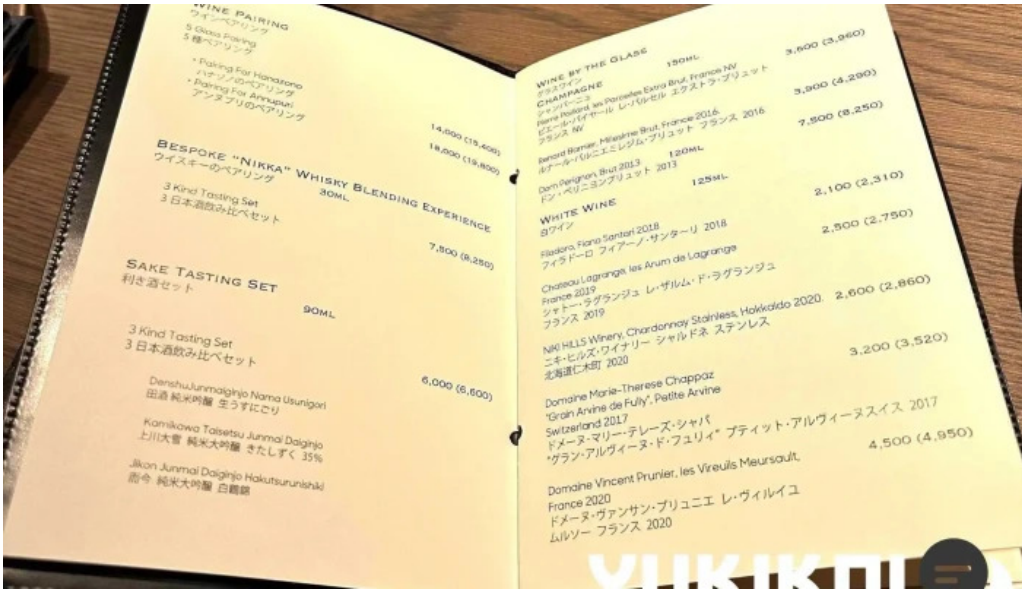 WINE PAIRING
ワインペアリング
5 Glass Pairing
5 種ペアリング
* Pairing For Hanazono
ハナゾノのペアリング
* Pairing For Annupuri
アンヌプリのペアリング
14,000 (15,400)
18,000 (19,800)
BESPOKE "NIKKA" WHISKY BLENDING EXPERIENCE
ウイスキーのペアリング
30ML
3 Kind Tasting Set
3 日本酒飲み比べセット
7,500 (8,250)
SAKE TASTING SET
利き酒セット
90ML
3 Kind Tasting Set
3 日本酒飲み比べセット
6,000 (6,600)
DenshuJunmaiginjo Nama Usunigori
田酒 純米吟醸 生うすにごり
Kamikawa Taisetsu Junmai Daiginjo
上川大雪 純米大吟醸 きたしずく 35%
Jikon Junmai Daiginjo Hakutsurunishiki
而今 純米大吟醸 白鶴錦
WINE BY THE GLASS
グラスワイン
150ML
CHAMPAGNE
シャンパーニュ
3,600 (3,960)
Pierre Paillard, les Parcelles Extra Brut, France NV
ピエール・パイヤール レ・パルセル エクストラ・ブリュット
フランス NV
3,900 (4,290)
Renard Barnier, Milesime Brut, France 2016
ルナール・バルニエミレジム・ブリュット フランス 2016
7,500 (8,250)
Dom Perignon, Brut 2013
120ML
ドン・ペリニヨンブリュット 2013
WHITE WINE
125ML
白ワイン
2,100 (2,310)
Filadoro, Fiano Santari 2018
フィラドーロ フィアーノ・サンターリ 2018
2,500 (2,750)
Chateau Lagrange, les Arum de Lagrange
France 2019
シャトー・ラグランジュ レ・ザルム・ド・ラグランジュ
フランス 2019
NIKI HILLS Winery, Chardonnay Stainless, Hokkaido 2020, 2,600 (2,860)
ニキ・ヒルズ・ワイナリー シャルドネ ステンレス
北海道仁木町 2020
3,200 (3,520)
Domaine Marie-Therese Chappaz
"Grain Arvine de Fully", Petite Arvine
Switzerland 2017
ドメーヌ・マリー・テレーズ・シャパ
"グラン・アルヴィーヌ・ド・フュリィ" プティット・アルヴィーヌスイス 2017
4,500 (4,950)
Domaine Vincent Prunier, les Vireuils Meursault,
France 2020
ドメーヌ・ヴァンサン・プリュニエ レ・ヴィルイユ
ムルソー フランス 2020